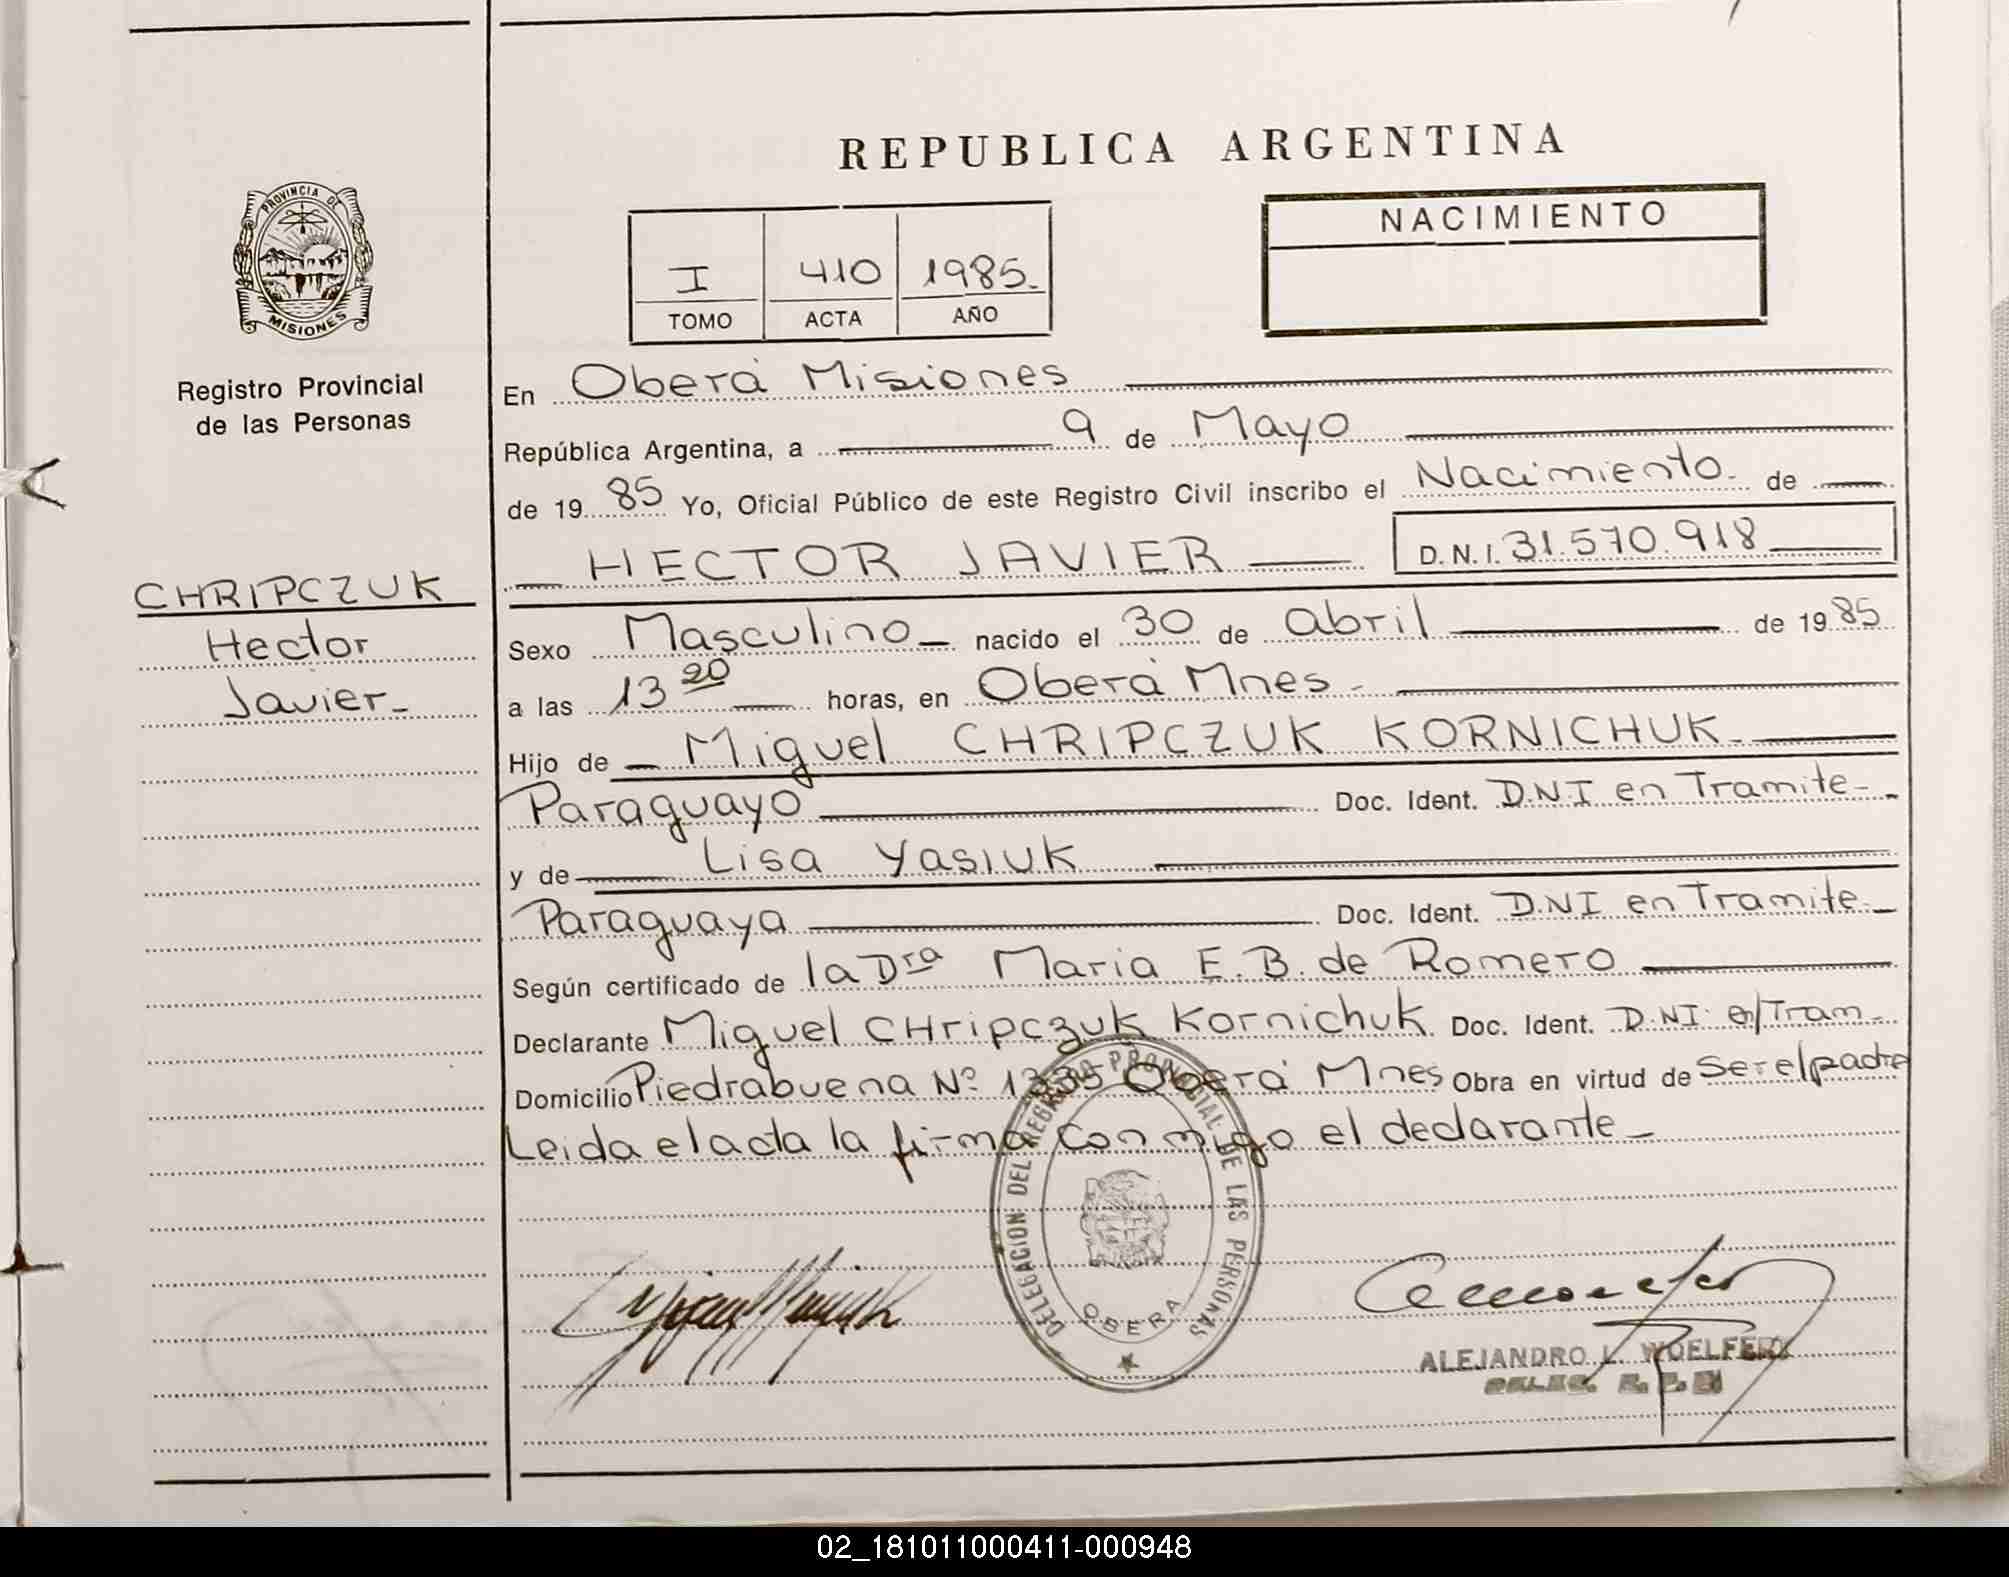 REPUBLICA ARGENTINA
PROVINCIA DE
MISIONES
Registro Provincial
de las Personas
I 410 1985.
TOMO ACTA AÑO
NACIMIENTO
En Oberá Misiones
República Argentina, a 9 de Mayo
de 19 85 Yo, Oficial Público de este Registro Civil inscribo el Nacimiento. de
HECTOR JAVIER D.N.I. 31.570.918
CHRIPCZUK
Hector
Javier-
Sexo Masculino nacido el 30 de abril de 19 85
a las 13 20 horas, en Oberá Mnes.
Hijo de Miguel CHRIPCZUK KORNICHUK.
Paraguayo Doc. Ident. D.N.I en Tramite-
y de Lisa Yasiuk
Paraguaya Doc. Ident. D.NI en Tramite.
Según certificado de la Dra Maria E.B. de Romero
Declarante Miguel CHripczuk Kornichuk. Doc. Ident. D.NI. en/Tram-
Domicilio Piedrabuena Nº Oberá Mnes Obra en virtud de Ser el padre
Leida el acta la firma conmigo el declarante-
DELEGACION DEL REGISTRO PROVINCIAL DE LAS PERSONAS
OBERA
ALEJANDRO L.
02_181011000411-000948